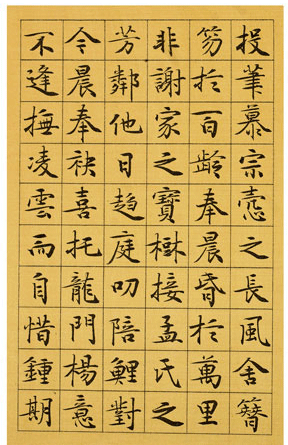 投筆慕宗愨之長風舍簪
笏於百齡奉晨昏於萬里
非謝家之寶樹接孟氏之
芳鄰他日趨庭叨陪鯉對
今晨奉袂喜托龍門楊意
不逢撫凌雲而自惜鍾期